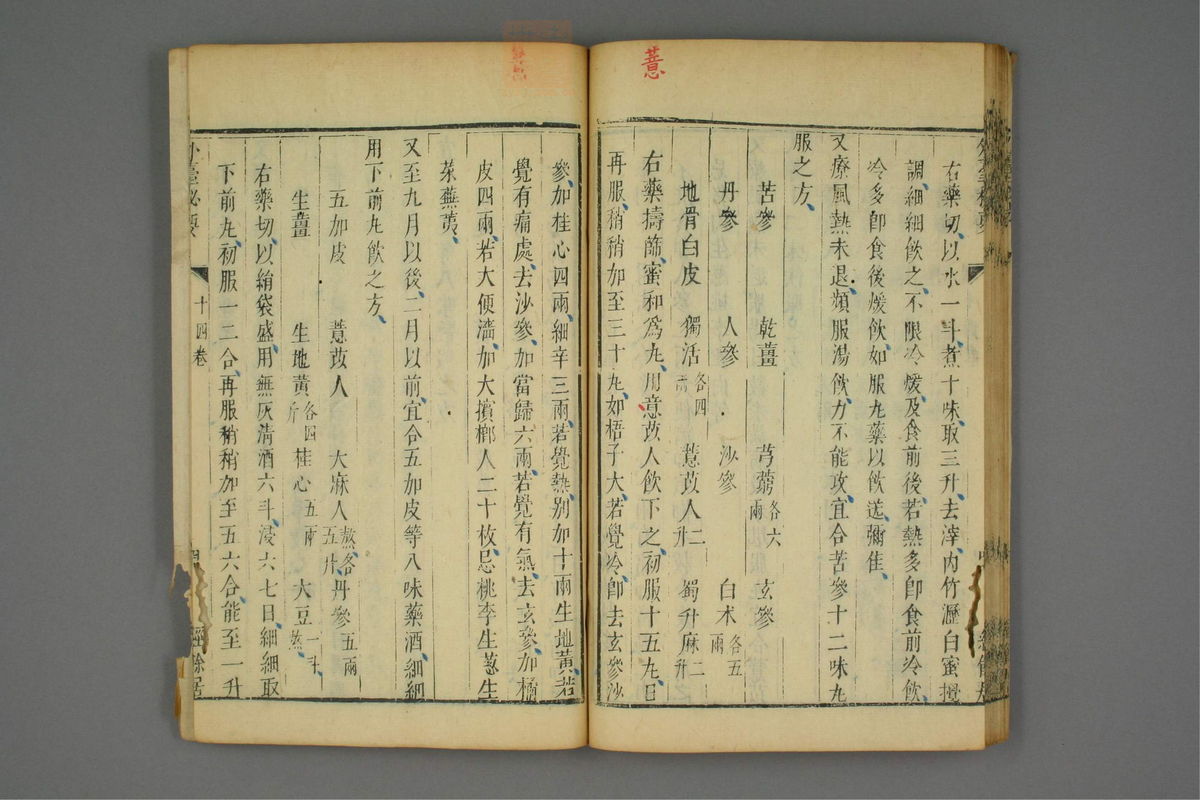 薏
右藥切以水一斗煮十味取三升去滓内竹瀝白蜜攪
調細細飲之不限冷煖及食前後若熱多卽食前冷飲
冷多卽食後煖飲如服丸藥以飲送彌佳
又療風熱未退頻服湯飲力不能攻宜合苦參十二味丸
服之方
苦參 乾薑 芎藭各六兩 玄參
丹參 人參 沙參 白朮各五兩
地骨白皮 獨活各四兩 薏苡人二升 蜀升麻二升
右藥擣篩蜜和爲丸用意苡人飲下之初服十五丸日
再服稍稍加至三十丸如梧子大若覺冷卽去玄參沙
參加桂心四兩細辛三兩若覺熱別加十兩生地黃若
覺有痛處去沙參加當歸六兩若覺有氣去玄參加橘
皮四兩若大便濇加大檳榔人二十枚忌桃李生蔥生
菜蕪荑
又至九月以後二月以前宜合五加皮等八味藥酒細細
用下前丸飲之方
五加皮 薏苡人 大麻人熬各五升 丹參五兩
生薑 生地黃各四斤 桂心五兩 大豆一斗熬
右藥切以絹袋盛用無灰清酒六斗浸六七日細細取
下前丸初服一二合再服稍稍加至五六合能至一升
外臺秘要 十四卷 經餘居